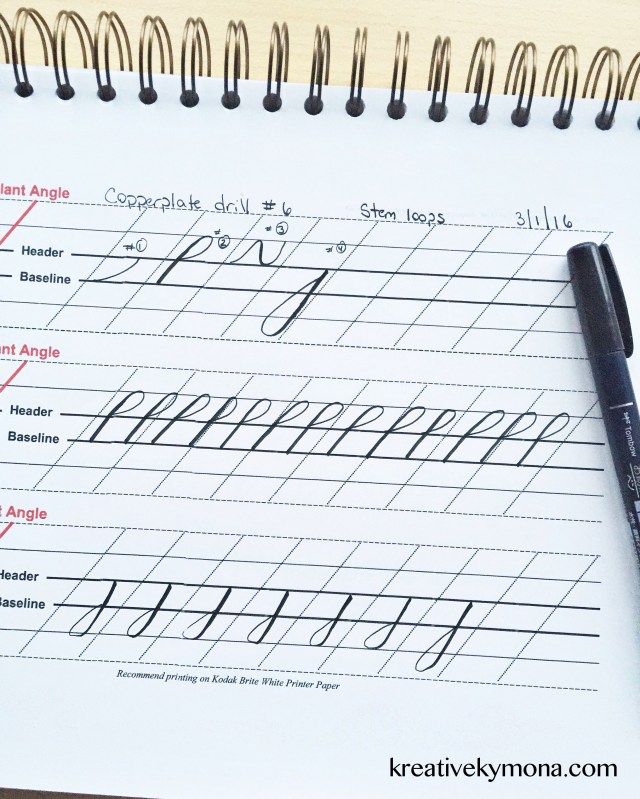 lant Angle
Copperplate drill #6 Stem loops 3/1/16
#① #② #③ #④
Header
Baseline
ant Angle
Header
Baseline
Angle
Header
Baseline
Recommend printing on Kodak Brite White Printer Paper
Tombow
kreativekymona.com